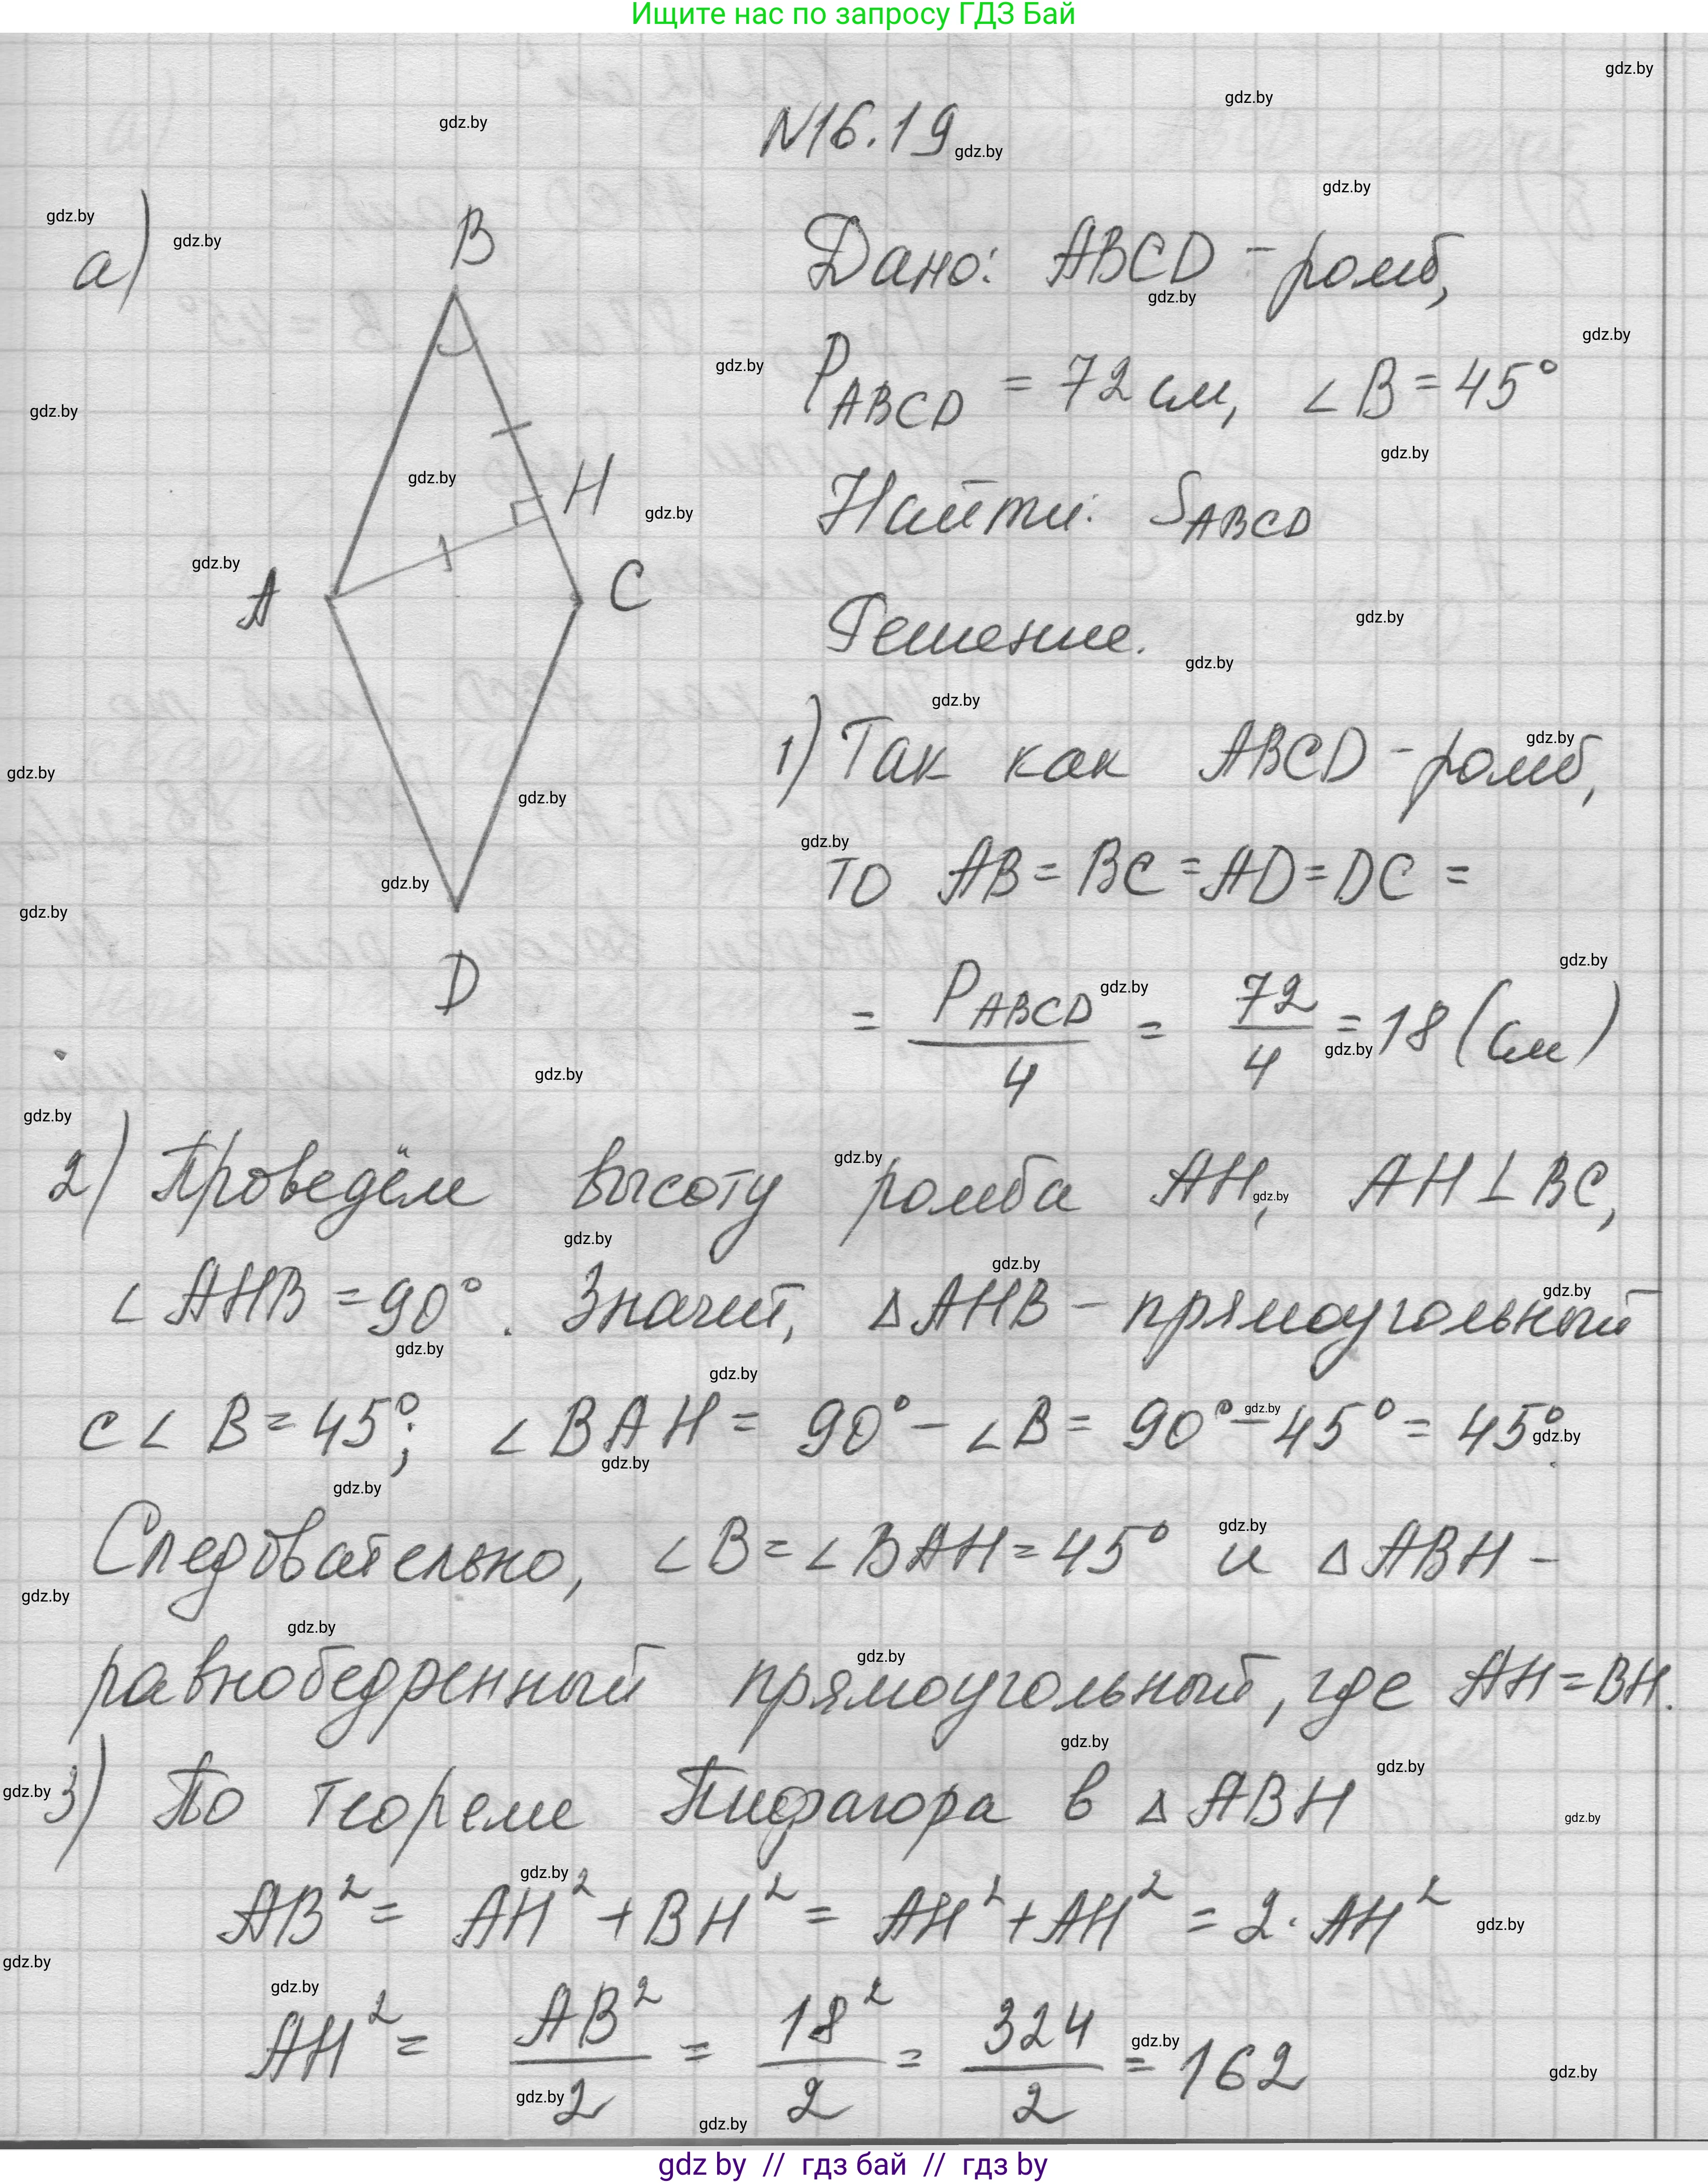 Ищите нас по запросу ГДЗ Бай
N16.19
а)
B
H
A
C
D
Дано: ABCD - ромб,
P_ABCD = 72 см, ∠B = 45°
Найти: S_ABCD
Решение.
1) Так как ABCD - ромб,
то AB = BC = AD = DC =
= P_ABCD / 4 = 72 / 4 = 18 (см)
2) Проведём высоту ромба AH, AH ⊥ BC,
∠AHB = 90°. Значит, △AHB - прямоугольный
с ∠B = 45°; ∠BAH = 90° - ∠B = 90° - 45° = 45°.
Следовательно, ∠B = ∠BAH = 45° и △ABH -
равнобедренный прямоугольный, где AH = BH.
3) По теореме Пифагора в △ABH
AB² = AH² + BH² = AH² + AH² = 2 · AH²
AH² = AB² / 2 = 18² / 2 = 324 / 2 = 162
gdz by // гдз бай // гдз by